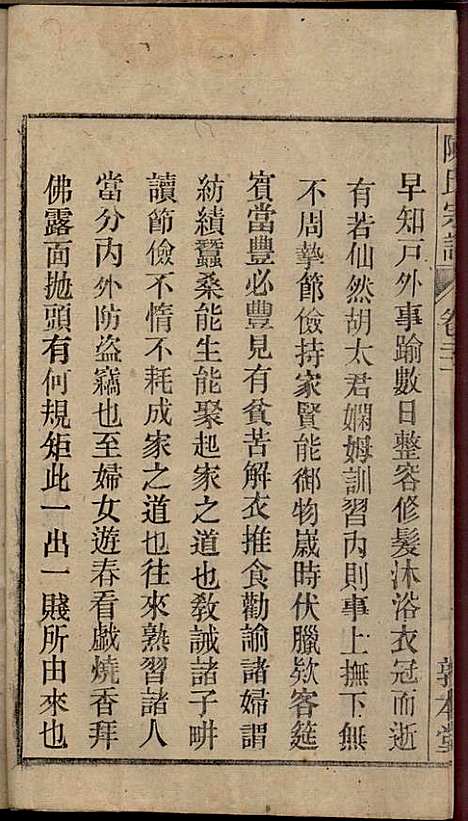 陳氏宗譜 卷三 敦本堂
早知戸外事踰數日整容修髮沐浴衣冠而逝
有若仙然胡太君嫻姆訓習內則事上撫下無
不周摯節儉持家賢能御物嵗時伏臘欵客筵
賓當豐必豐見有貧苦解衣推食勸諭諸婦謂
紡績蠶桑能生能聚起家之道也敎誡諸子畊
讀節儉不惰不耗成家之道也往來熟習諸人
當分內外防盜竊也至婦女遊春看戯燒香拜
佛露面抛頭有何規矩此一出一賤所由來也